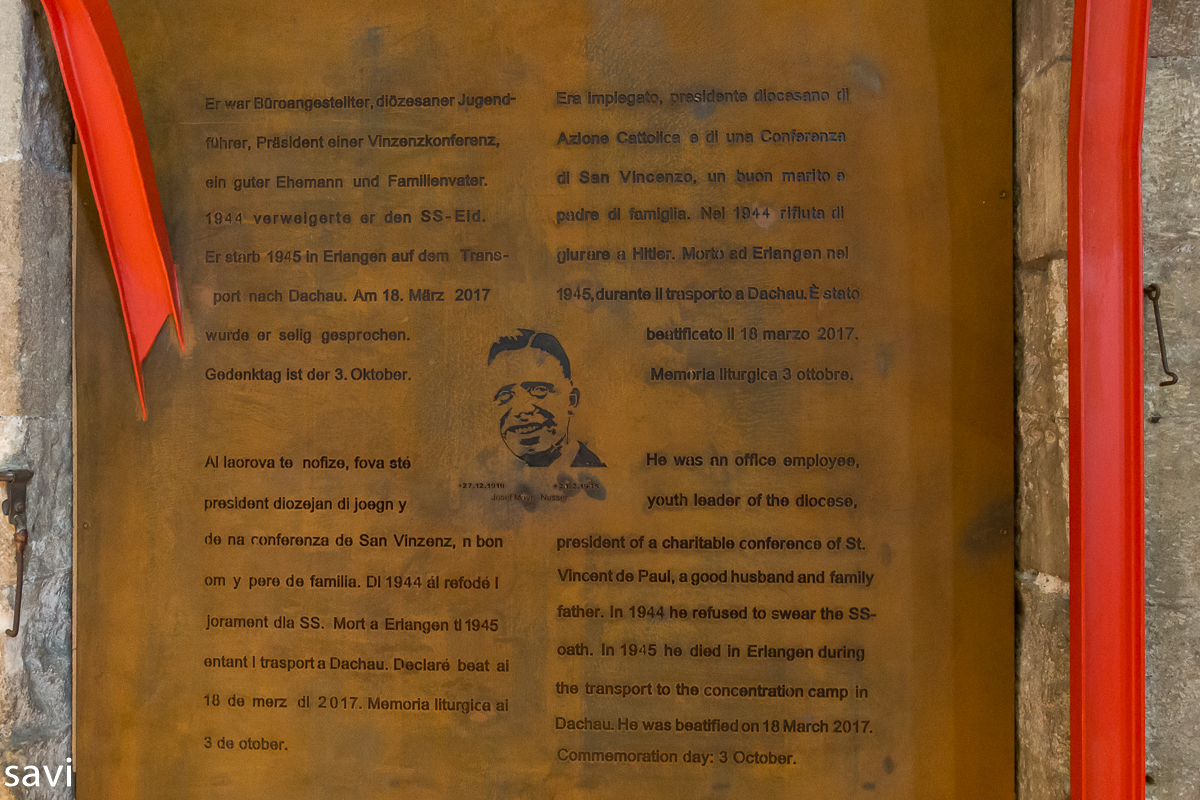 Er war Büroangestellter, diözesaner Jugend-
führer, Präsident einer Vinzenzkonferenz,
ein guter Ehemann und Familienvater.
1944 verweigerte er den SS-Eid.
Er starb 1945 in Erlangen auf dem Trans-
port nach Dachau. Am 18. März 2017
wurde er selig gesprochen.
Gedenktag ist der 3. Oktober.
Era impiegato, presidente diocesano di
Azione Cattolica e di una Conferenza
di San Vincenzo, un buon marito e
padre di famiglia. Nel 1944 rifiuta di
giurare a Hitler. Morto ad Erlangen nel
1945, durante il trasporto a Dachau. È stato
beatificato il 18 marzo 2017.
Memoria liturgica 3 ottobre.
*27.12.1910
Josef Mayr-Nusser
Al laorova te nofize, fova sté
president diozejan di joegn y
de na conferenza de San Vinzenz, n bon
om y pere de familia. Dl 1944 ál refodé l
jorament dla SS. Mort a Erlangen tl 1945
entant l trasport a Dachau. Declaré beat ai
18 de merz dl 2017. Memoria liturgica ai
3 de otober.
He was an office employee,
youth leader of the diocese,
president of a charitable conference of St.
Vincent de Paul, a good husband and family
father. In 1944 he refused to swear the SS-
oath. In 1945 he died in Erlangen during
the transport to the concentration camp in
Dachau. He was beatified on 18 March 2017.
Commemoration day: 3 October.
savi